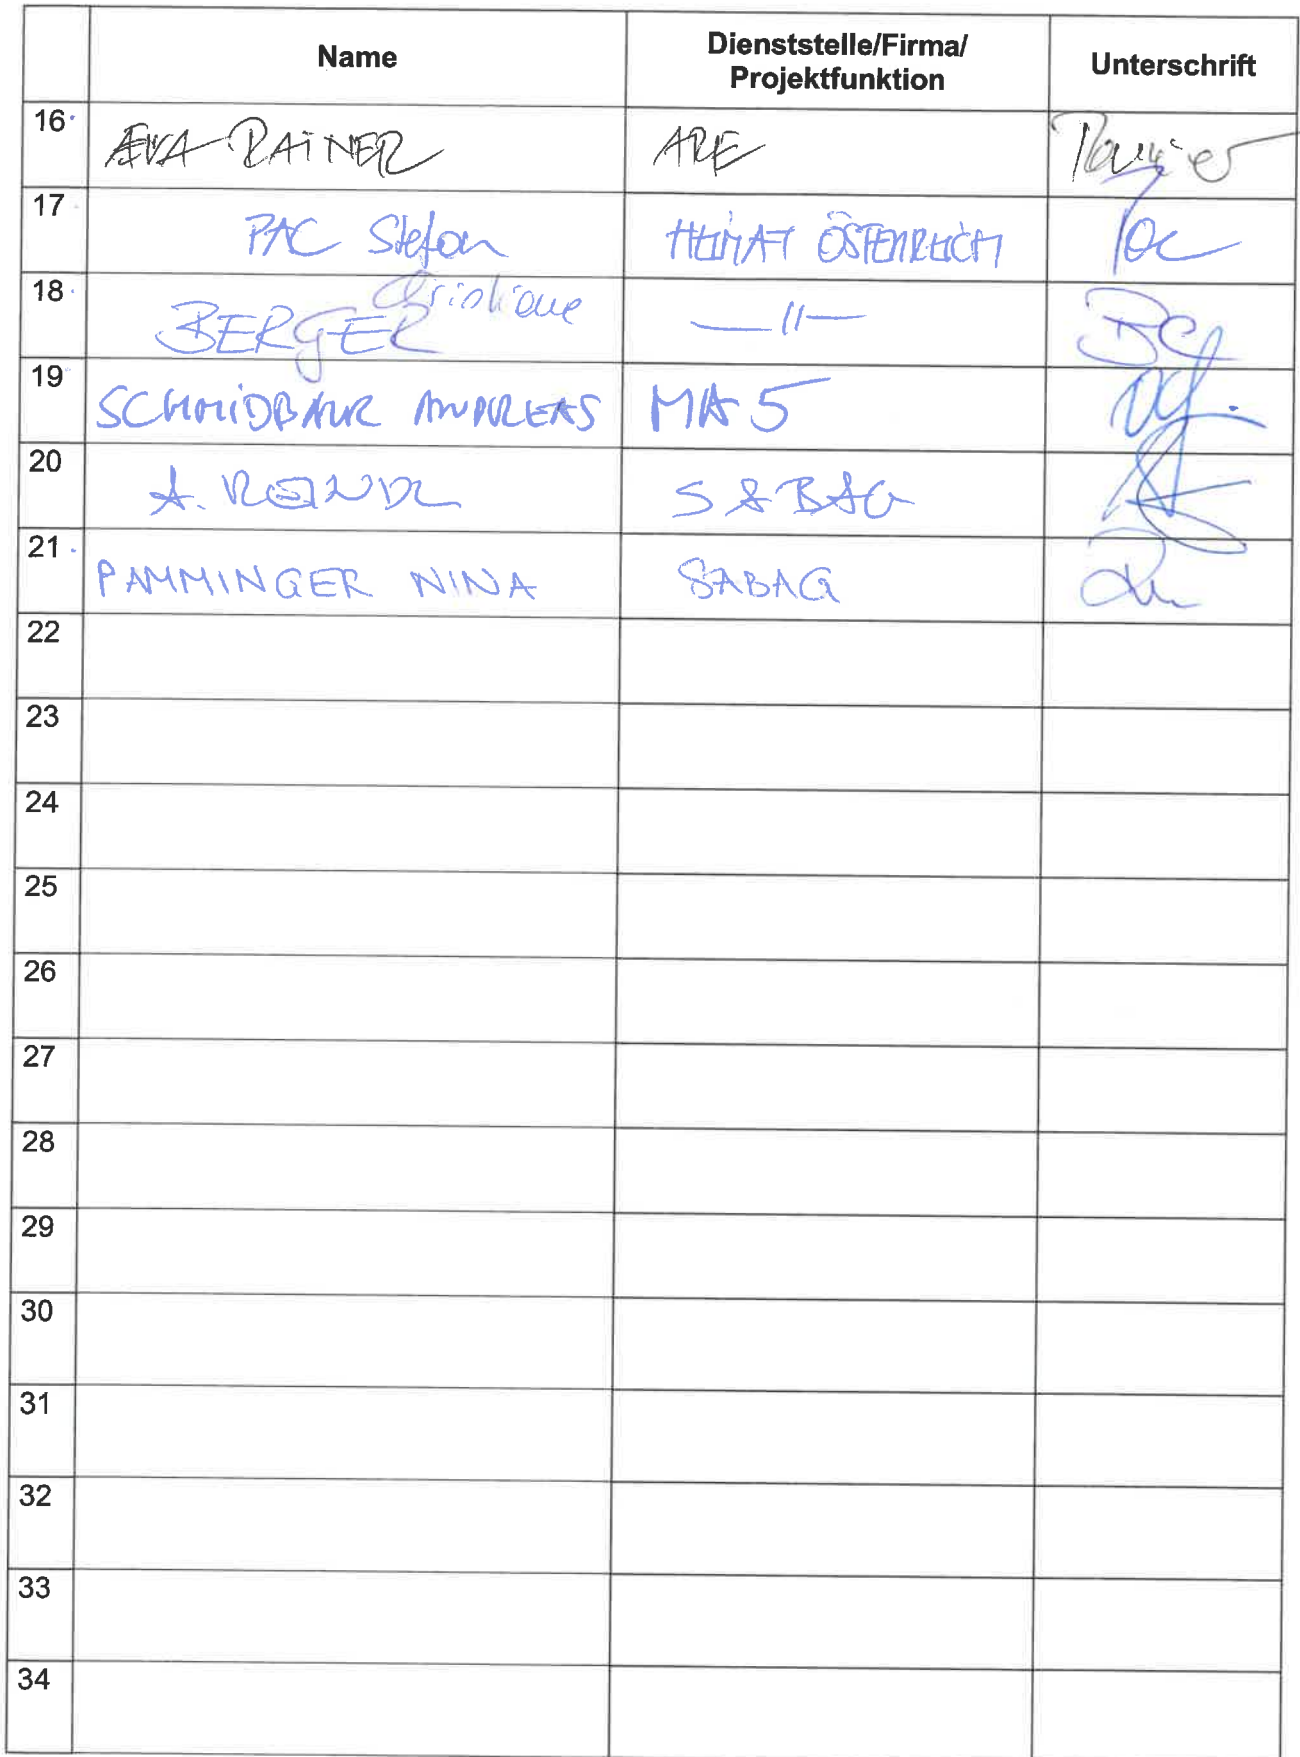 Name Dienststelle/Firma/ Projektfunktion Unterschrift
16 EVA RAINER ARE Rainer
17 PAC Stefan HEIMAT ÖSTERREICH Pac
18 BERGER Christiane —11—
19 SCHMIDBAUR ANDREAS MA 5
20 A. REINDL SABAG
21 PAMMINGER NINA SABAG
22
23
24
25
26
27
28
29
30
31
32
33
34